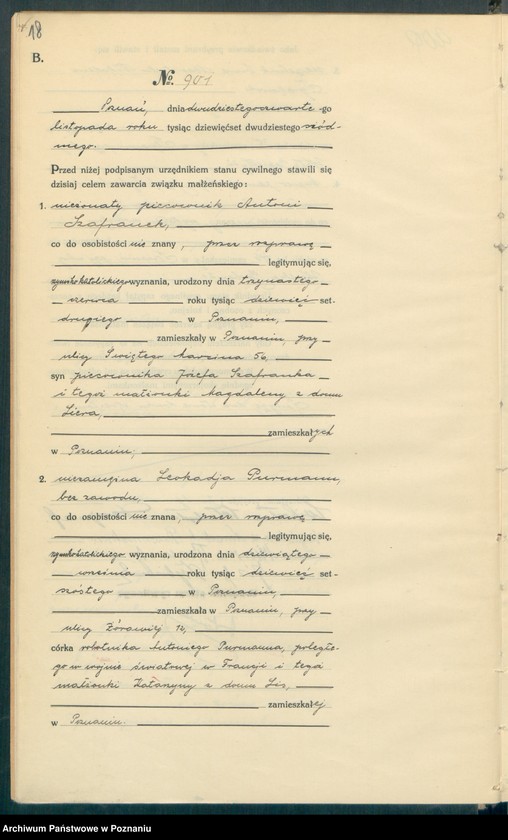 18
B.
№ 901
Poznań, dnia dwudziestego czwarte-go
listopada roku tysiąc dziewięćset dwudziestego siód-
mego.
Przed niżej podpisanym urzędnikiem stanu cywilnego stawili się
dzisiaj celem zawarcia związku małżeńskiego:
1. nieżonaty piecownik Antoni
Szafranek,
co do osobistości nie znany, przez rozprawę
legitymując się,
rzymskokatolickiego wyznania, urodzony dnia trzynastego
czerwca roku tysiąc dziewięć set-
drugiego w Poznaniu,
zamieszkały w Poznaniu, przy
ulicy Świętego Marcina 56,
syn piecownika Józefa Szafranka
i tegoż małżonki Magdaleny z domu
zamieszkałych
w Poznaniu;
2. niezamężna Leokadja Purmann,
bez zawodu,
co do osobistości nie znana, przez rozprawę
legitymując się,
rzymskokatolickiego wyznania, urodzona dnia dziewiątego
września roku tysiąc dziewięć set-
szóstego w Poznaniu,
zamieszkała w Poznaniu, przy
ulicy Żórawiej 12,
córka robotnika Antoniego Purmanna, poległe-
go w wojnie światowej w Francji i tegoż
małżonki Katarzyny z domu Lis,
zamieszkałej
w Poznaniu.
Archiwum Państwowe w Poznaniu